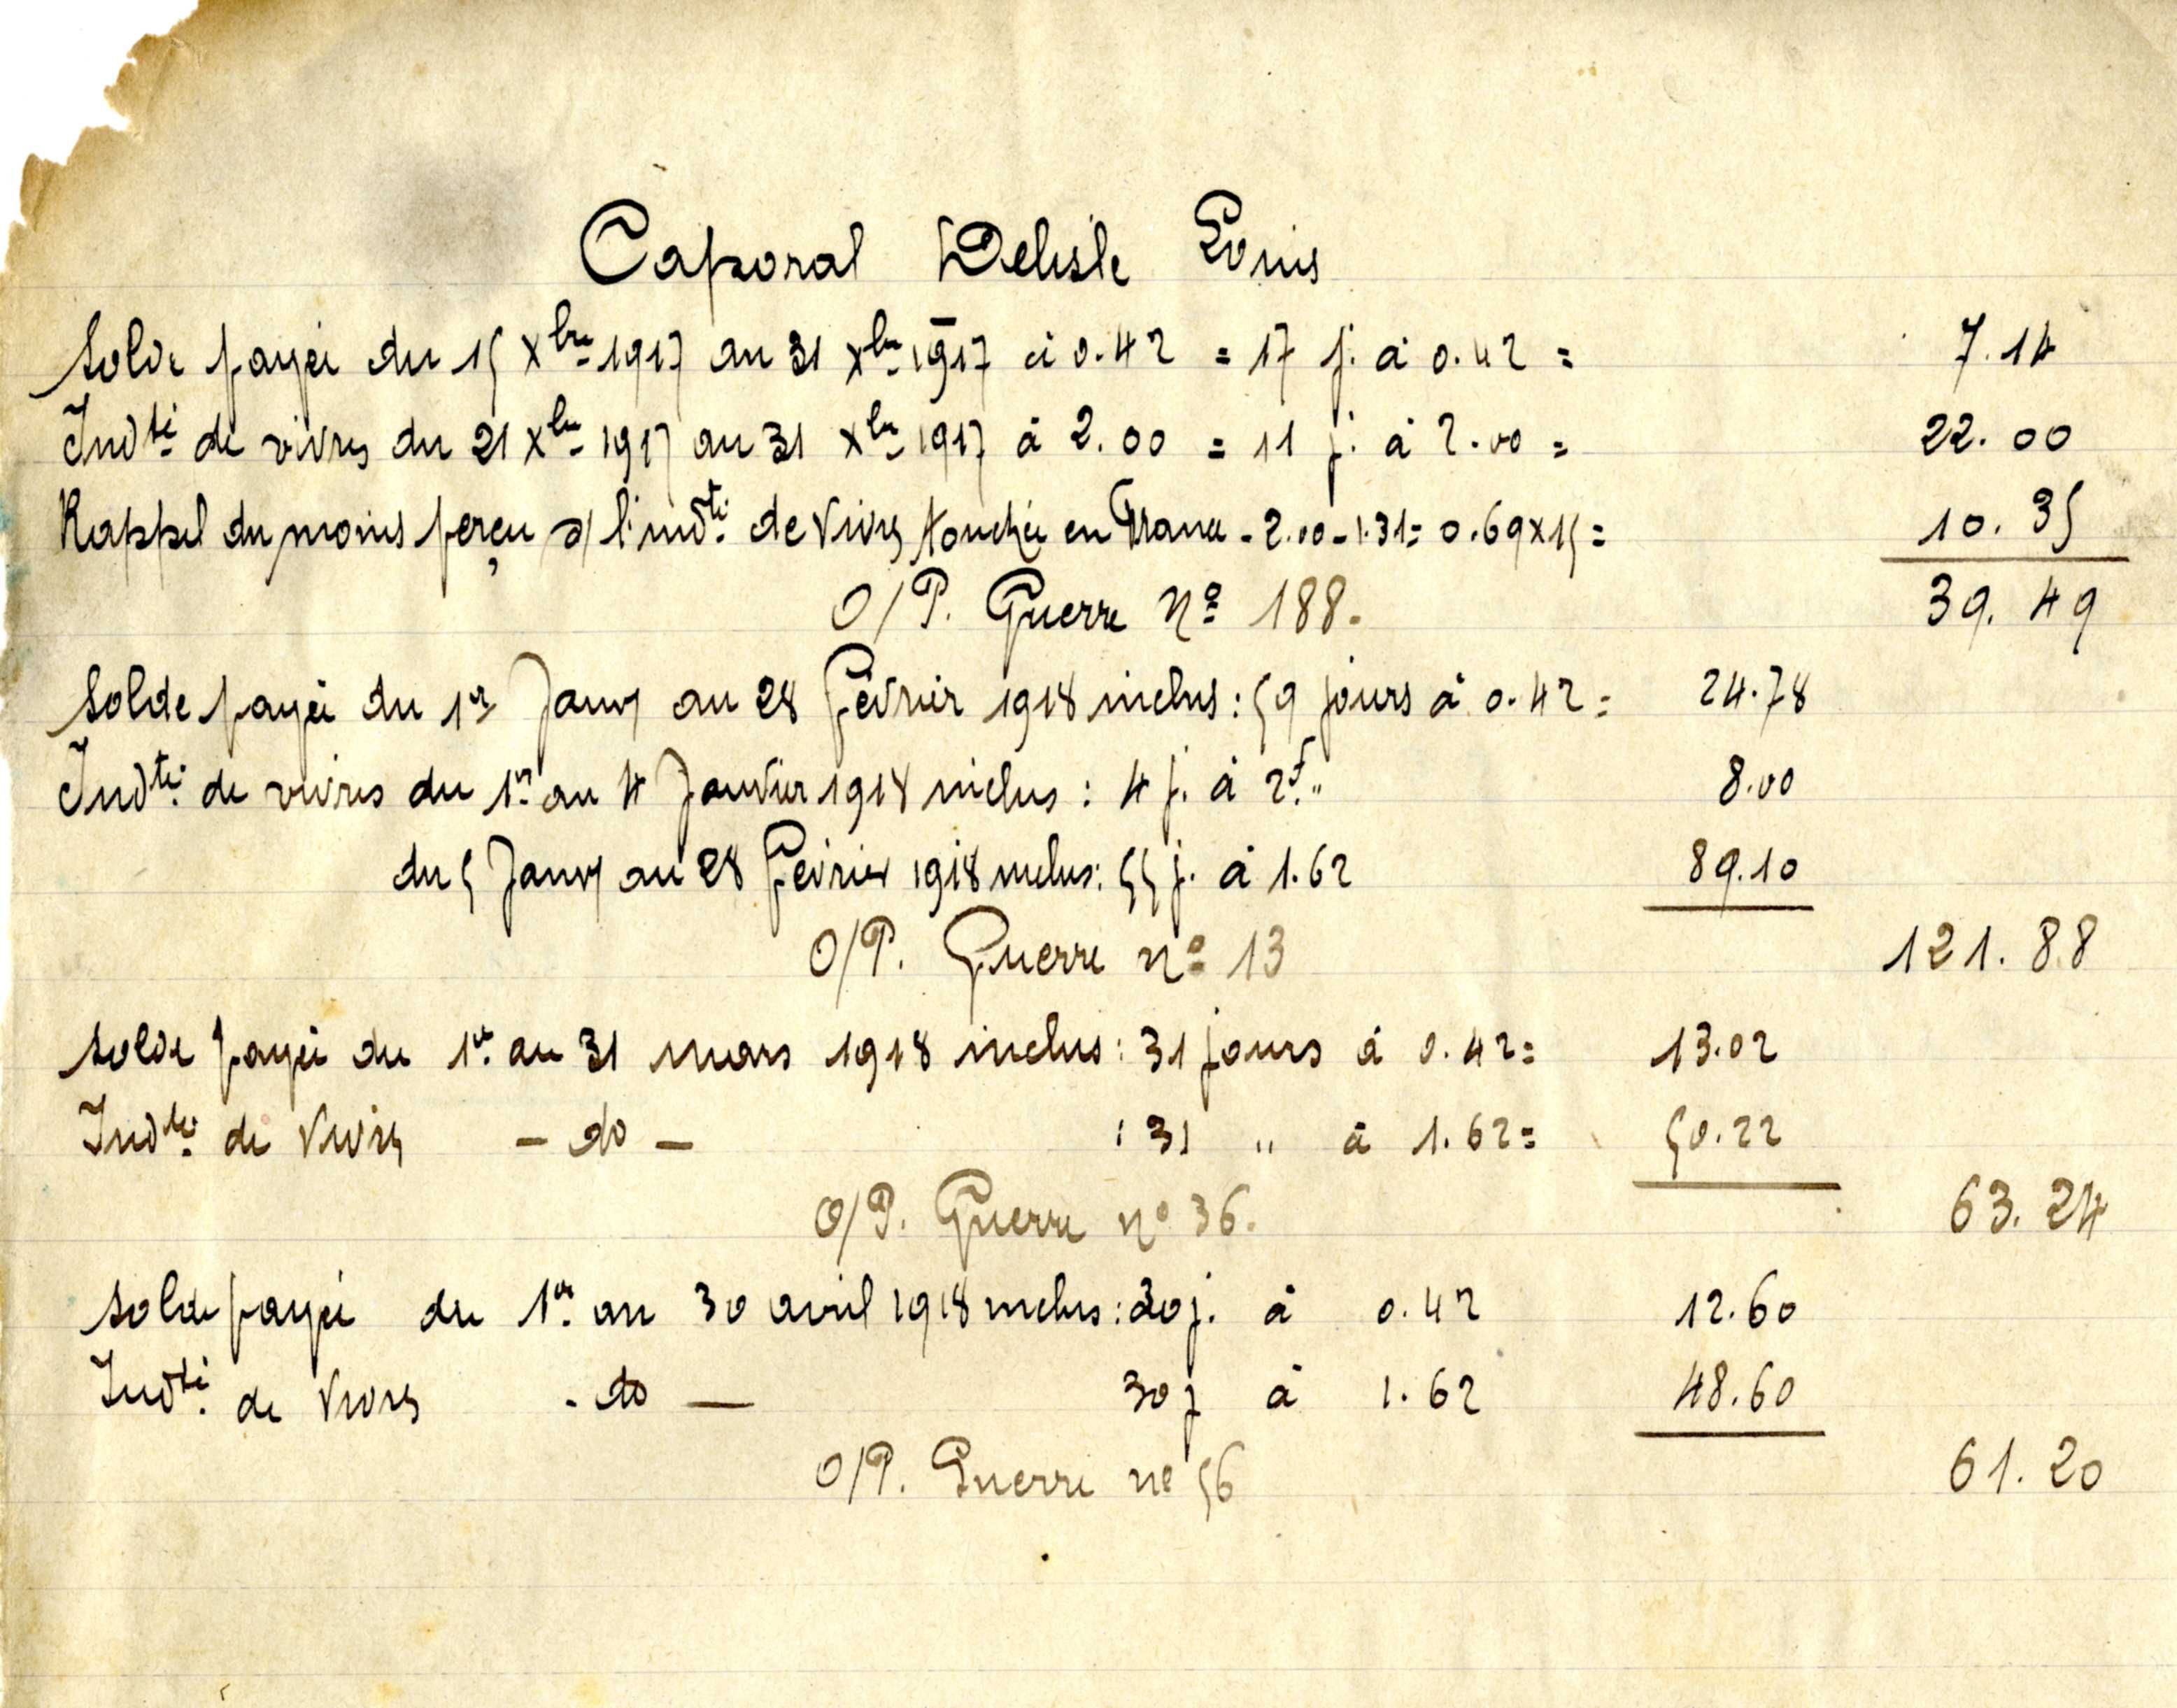 Caporal Delisle Louis
Solde payée du 15 Xbre 1917 au 31 Xbre 1917 à 0.42 = 17 j. à 0.42 = 7.14
Indté de vivres du 21 Xbre 1917 au 31 Xbre 1917 à 2.00 = 11 j. à 2.00 = 22.00
Rappel du moins perçu s/ l'indté de vivres touchée en France - 2.00 - 1.31 = 0.69 x 15 = 10.35
O/P. Guerre No 188. 39.49
Solde payée du 1er Janv au 28 Février 1918 inclus : 59 jours à 0.42 = 24.78
Indté de vivres du 1er au 4 Janvier 1918 inclus : 4 j. à 2f. " 8.00
du 5 Janv au 28 Février 1918 inclus : 55 j. à 1.62 89.10
O/P. Guerre no 13 121.88
Solde payée du 1er au 31 mars 1918 inclus : 31 jours à 0.42 = 13.02
Indté de vivres - do - : 31 " à 1.62 = 50.22
O/P. Guerre no 36. 63.24
Solde payée du 1er au 30 avril 1918 inclus : 30 j. à 0.42 12.60
Indté de vivres - do - 30 j à 1.62 48.60
O/P. Guerre no 56 61.20